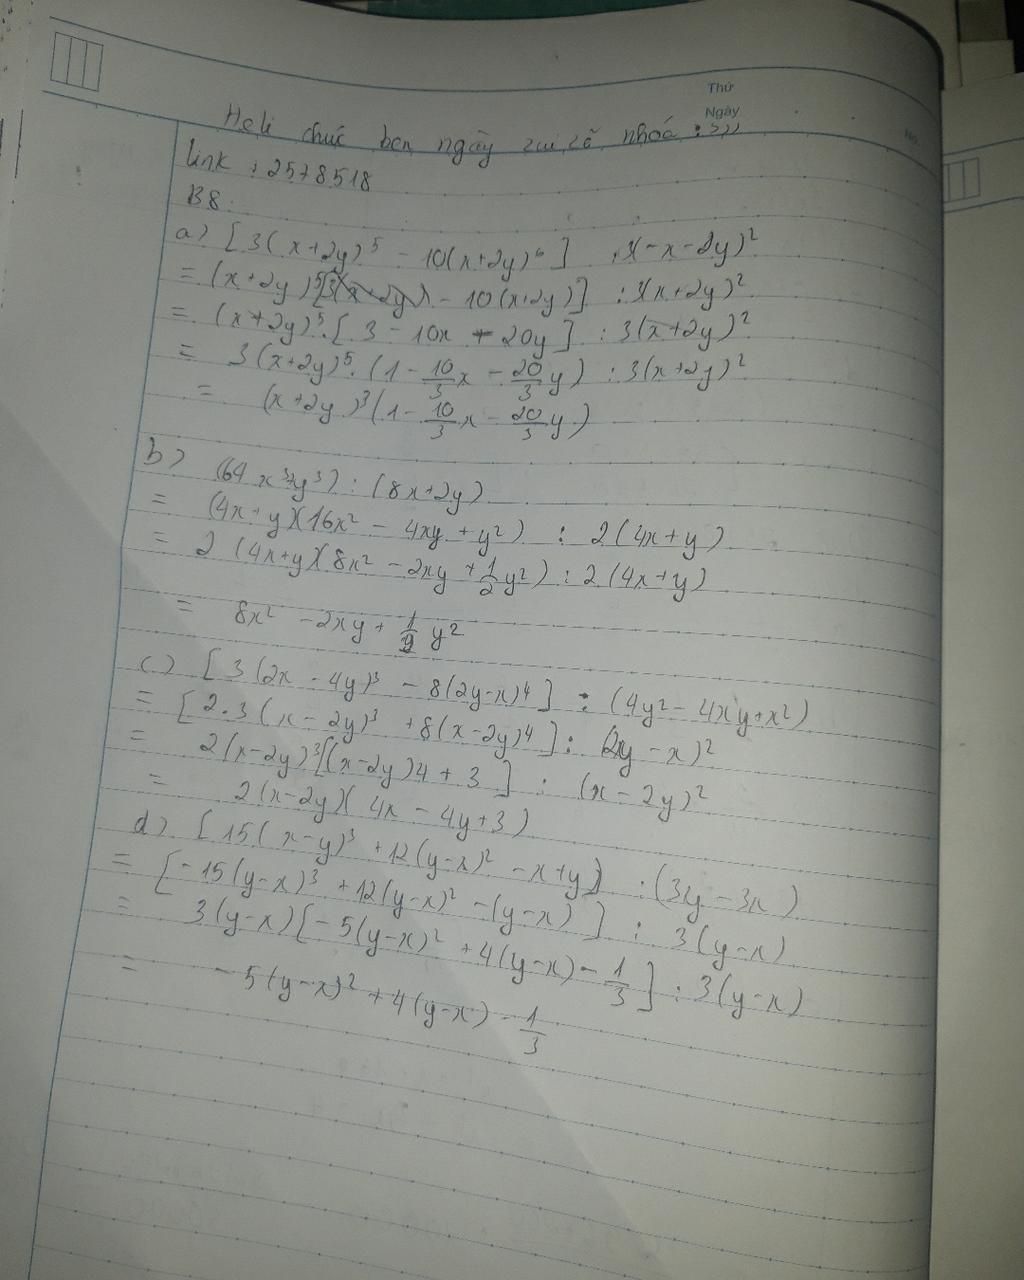 Thứ
Ngày
No.
Heli chúc bạn ngày zui zẻ nhoá :>>>
link : 2578518
B8.
a) [3(x+2y)^5 - 10(x+2y)^6] : 3(-x-2y)^2
= (x+2y)^5[3 - 10(x+2y)] : 3(x+2y)^2
= (x+2y)^5.[3 - 10x - 20y] : 3(x+2y)^2
= 3(x+2y)^5.(1 - 10/3 x - 20/3 y) : 3(x+2y)^2
= (x+2y)^3(1 - 10/3 x - 20/3 y)
b) (64x^3+y^3) : (8x+2y)
= (4x+y)(16x^2 - 4xy + y^2) : 2(4x+y)
= 2(4x+y)(8x^2 - 2xy + 1/2 y^2) : 2(4x+y)
= 8x^2 - 2xy + 1/2 y^2
c) [3(2x - 4y)^3 - 8(2y-x)^4] : (4y^2 - 4xy+x^2)
= [2.3(x-2y)^3 + 8(x-2y)^4] : (2y-x)^2
= 2(x-2y)^3[(x-2y)4+3] : (x-2y)^2
= 2(x-2y)(4x-4y+3)
d) [15(x-y)^3 + 12(y-x)^2 - x+y] : (3y-3x)
= [-15(y-x)^3 + 12(y-x)^2 - (y-x)] : 3(y-x)
= 3(y-x)[-5(y-x)^2 + 4(y-x) - 1/3] : 3(y-x)
= -5(y-x)^2 + 4(y-x) - 1/3